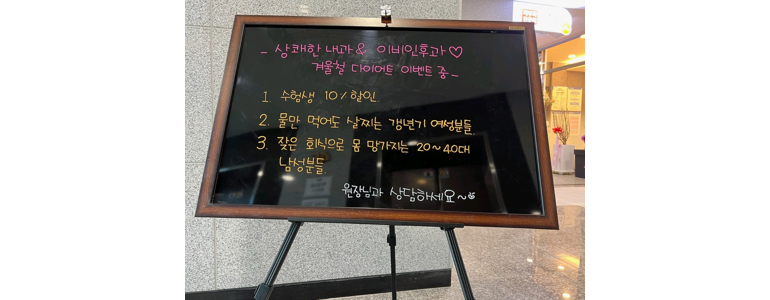 - 상쾌한 내과 & 이비인후과♡
겨울철 다이어트 이벤트 중 -
1. 수험생 10% 할인
2. 물만 먹어도 살찌는 갱년기 여성분들
3. 잦은 회식으로 몸 망가지는 20~40대
남성분들.
원장님과 상담하세요~